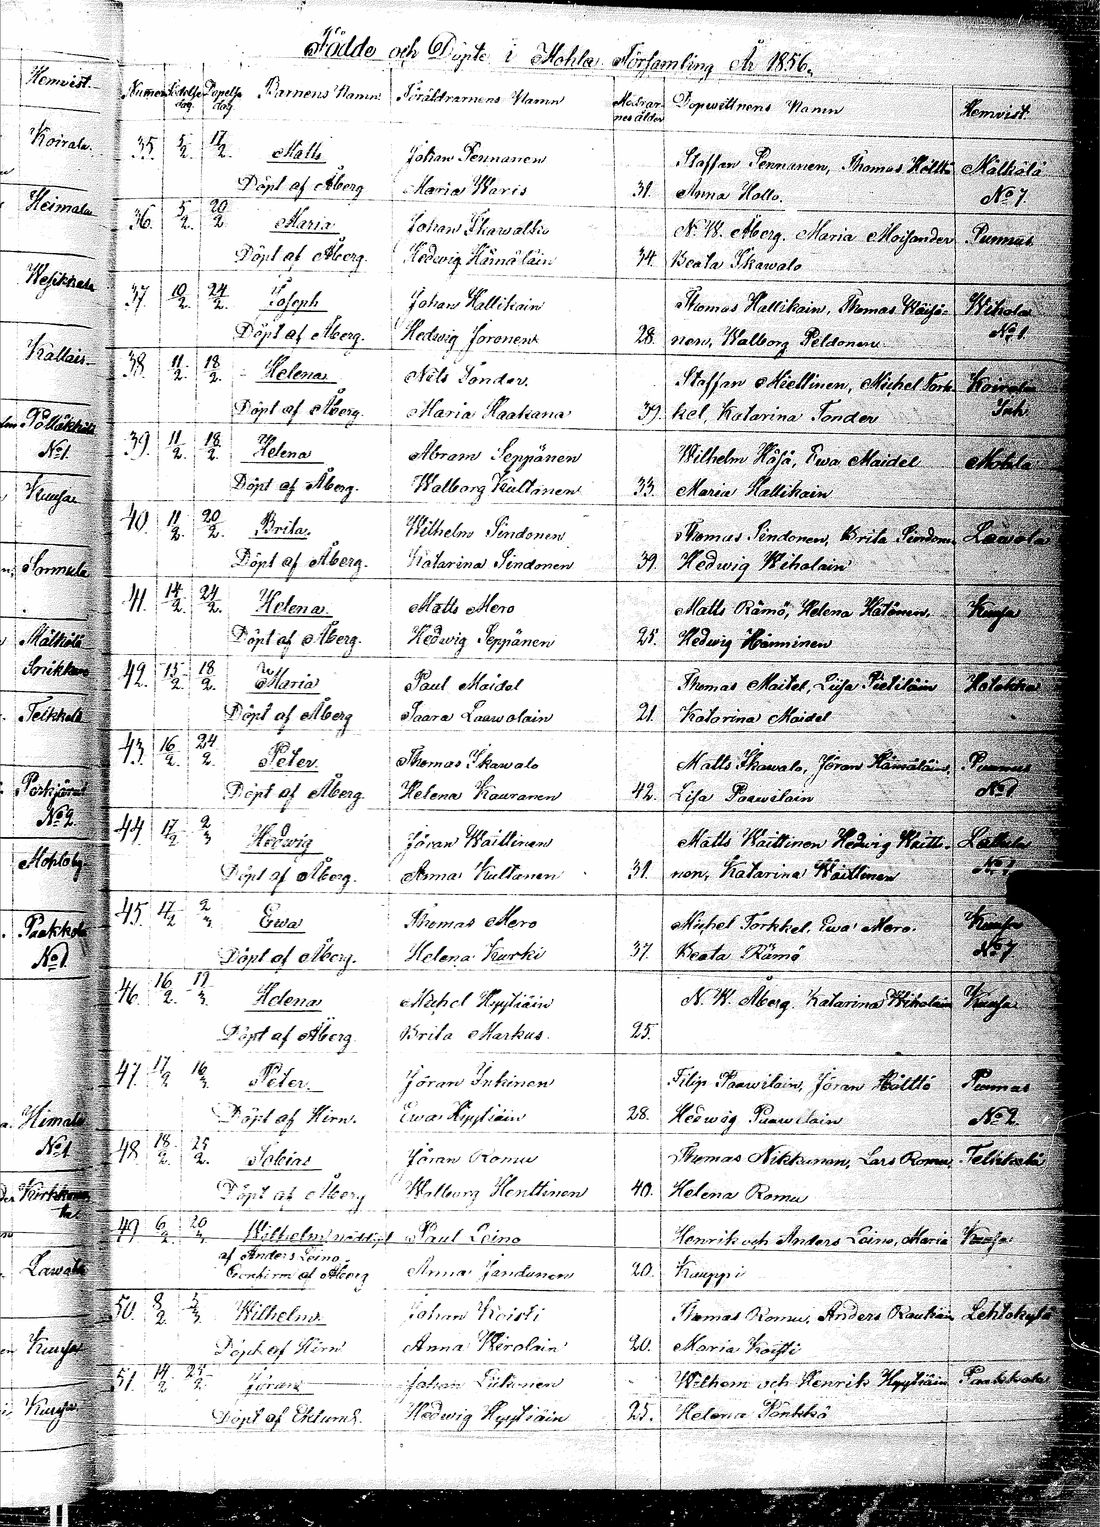 Hemvist.
Koirala.
Heimala
Kallais.
No 1.
Kuusa
Sormula
Mälkölä
Snikkare
Teikkelä
No 2.
Mohlaby
No 1
Himala
No 1
Lawala
Kuusa
Kuusa
Födde och Döpte i Mohla Församling År 1856.
Numer Födelse dag. Döpelse dag Barnens Namn. Föräldrarnens Namn Modrar nes ålder Dopwittnens Namn Hemvist.
35. 5/2. 17/2. Matts Johan Pennanen Staffan Pennanen, Thomas Höltta Mälkölä
Döpt af Åberg Maria Waris 31. Anna Hollo. No 7.
36. 5/2. 20/2. Maria Johan Skawalo N. W. Åberg. Maria Moisander Punnus
Döpt af Åberg. Hedwig Hämäläin 34. Beata Skawalo
37. 10/2. 24/2. Joseph Johan Hallikain Thomas Hallikain, Thomas Wäisä- Wihola
Döpt af Åberg. Hedwig Joronen 28. nen, Walborg Peldonen No 1.
38. 11/2. 18/2. Helena Nils Tonder. Staffan Miettinen, Michel Tork- Koirala
Döpt af Åberg. Maria Haakana 39. kel, Katarina Tonder Inh.
39. 11/2. 18/2. Helena Abram Seppänen Wilhelm Häjä, Ewa Maidel Mohla
Döpt af Åberg. Walborg Kultanen 33. Maria Hallikain
40. 11/2. 20/2. Brita. Wilhelm Sindonen Thomas Sindonen, Brita Sindonen Laawola
Döpt af Åberg. Katarina Sindonen 39. Hedwig Wiholain
41. 14/2. 24/2. Helena. Matts Mero Matts Rämö, Helena Hatönen, Kuusa
Döpt af Åberg. Hedwig Seppänen 25. Hedwig Hänninen
42. 15/2. 18/2. Maria Paul Maidel Thomas Maitel, Lisa Pietiläin Hotokka
Döpt af Åberg Saara Laawolain 21. Katarina Maidel
43. 16/2. 24/2. Peter. Thomas Skawalo Matts Skawalo, Jöran Hämäläin, Punnus
Döpt af Åberg. Helena Kauranen 42. Lisa Paawilain No 1
44. 17/2. 2/3 Hedwig Jöran Wäittinen Matts Wäittinen Hedwig Wäitti-
Döpt af Åberg. Anna Kultanen 31. nen, Katarina Wäittinen
45. 17/2 2/3 Ewa Thomas Mero Michel Torkkel, Ewa Mero. Kuusa
Döpt af Åberg. Helena Kurki 37. Beata Rämö No 7
46. 16/2. 19/3. Helena Michel Hyytiäin N. W. Åberg. Katarina Wiholain Kuusa
Döpt af Åberg Brita Markus. 25.
47. 17/2 16/3. Peter. Jöran Inkinen Filip Paawilain, Jöran Hölttö Punnus
Döpt af Hirn. Ewa Hyytiäin 28. Hedwig Paawilain No 2.
48. 18/2. 25/2. Tobias Jöran Romu Thomas Nikkunen, Lars Romu, Telkkälä
Döpt af Åberg Walborg Henttinen 40. Helena Romu
49. 6/2. 20/3. Wilhelm, nöddöpt Paul Leino Henrik och Anders Leino, Maria Kuusa
af Anders Leino.
Confirm af Åberg Anna Jandunen 20. Kauppi
50. 8/2. 5/3. Wilhelm. Johan Koisti Thomas Romu, Anders Raukiain Lehtokylä
Döpt af Hirn Anna Wirolain 20. Maria Koisti
51. 14/2. 25/2. Jöran Johan Liikonen Wilhem och Henrik Hyytiäin Paakkola
Döpt af Eklund. Hedwig Hyytiäin 25. Helena Sönkkö